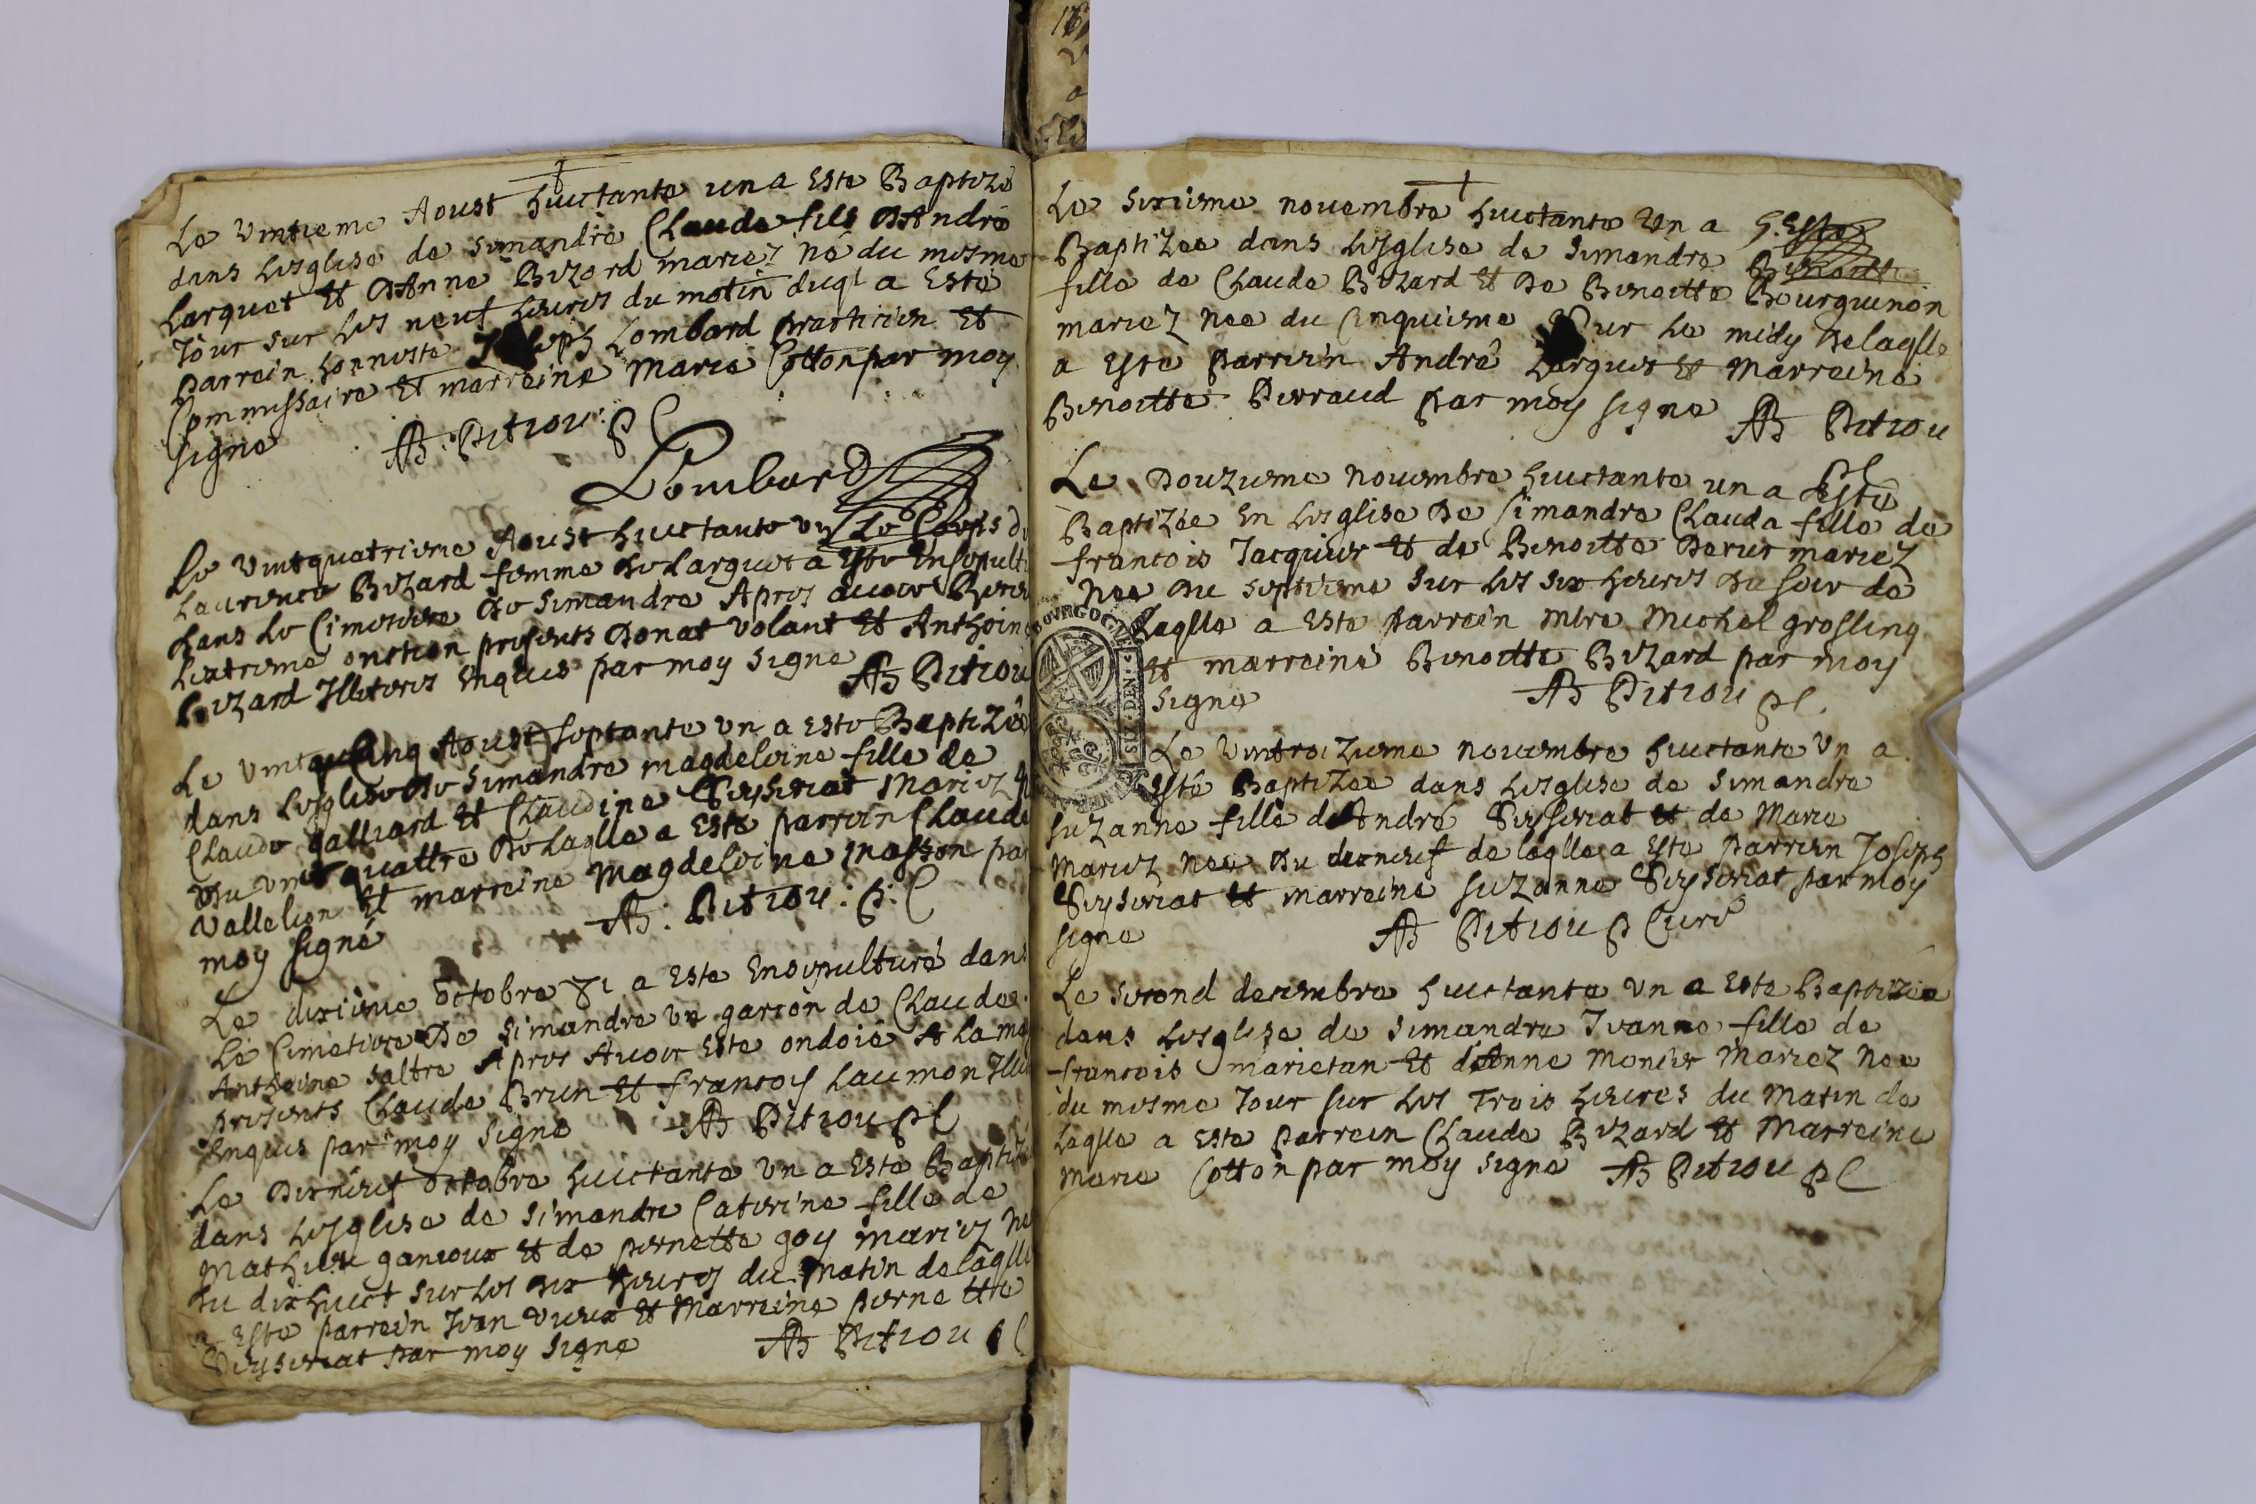 Le vintieme Aoust huictante un a este Baptizé
dans lesglise de Simandre Claude fils dAndré
Larguet et dAnne Bizard mariez né du mesme
Jour sur les neuf heures du matin duql a este
parrein honneste Joseph Lombard practicien et
Commissaire et marreine Marie Cotton par moy
signe AB. Petiou. p C
Lombard
Le vintquatriesme Aoust huictante un Le Corps d
Laurence Bizard femme de Larguet a este Ensepultu
dans Le Cimetiere de Simandre Apres avoir Receu
Lextreme onction presents Donat Volant et Anthoine
Bizard Illiteres Enquis par moy signe AB Petiou
Le vintcinq Aoust septante un a este Baptizée
dans lesglise de Simandre magdeleine fille de
Claude galliard et Claudine Seyseriat Mariez
du vint quattre de laqlle a este parrein Claude
Vallelion et marreine Magdeleine Masson par
moy signé AB. Petiou. p. C
Le dixiesme octobre 81 a este Ensepulturé dans
Le Cimetiere De Simandre un garcon de Claude
Anthoine Saltre Apres Avoir este ondoié A la ma
presents Claude Brun et francoy Laumon Illi
Enquis par moy signe AB Petiou p C
Le Dixneuf octobre huictante un a este Baptizé
dans lesglise de Simandre Caterine fille de
Mathieu ganioux et de pernette goy mariez Ne
du dixhuict sur les dix heures du Matin de laqlle
a este parrein Jean Vieux et Marreine pernette
Seyseriat par moy signe AB Petiou p C
Le sixiesme novembre huictante Un a
Baptizee dans lesglise de Simandre Benoitte
fille de Claude Bizard et De Benoitte Bourguinon
mariez nee du cinquiesme sur le midy De laqlle
a este parrein André Larguet et Marreine
Benoitte Perraud par moy signe AB Petiou
p C
Le Douziesme novembre huictante un a Esté
Baptizée En lesglise De Simandre Clauda fille de
francois Jacquier et de Benoitte Derier mariez
Nee Du septiesme sur les six heures du soir de
Laqlle a este parrein mbre Michel grosling
et marreine Benoitte Bizard par moy
signe AB Petiou p C.
Le Vintroiziesme novembre huictante Un a
Esté Baptizee dans lesglise de Simandre
Suzanne fille dAndré Seyseriat et de Marie
Mariez Nee Du dixneuf de laqlle a este parrein Joseph
Seyseriat et marreine Suzanne Seyseriat par moy
signe AB Petiou p Curé
Le second decembre huictante un a este Baptizée
dans lesglise de Simandre Jeanne fille de
francois marietan et dAnne monier Mariez Nee
du mesme Jour sur les Trois heures du Matin de
Laqlle a este parrein Claude Bizard et Marreine
Marie Cotton par moy signe AB Petiou p C